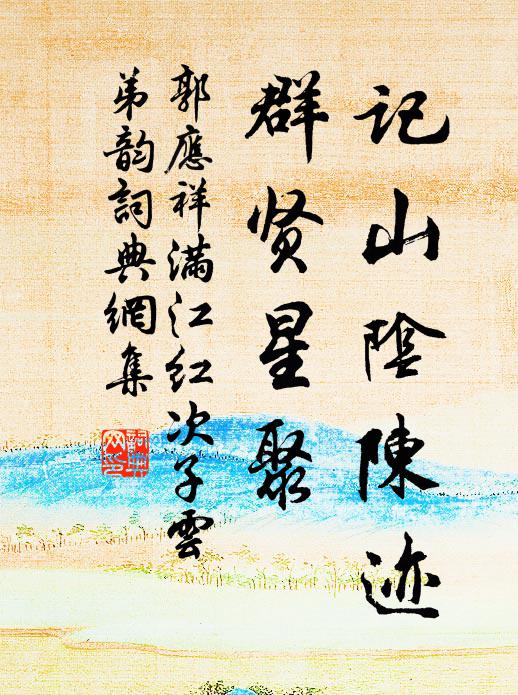 记山陰陳迹
群贤星聚
郭應祥满江红次子雲
弟韵詞典網集